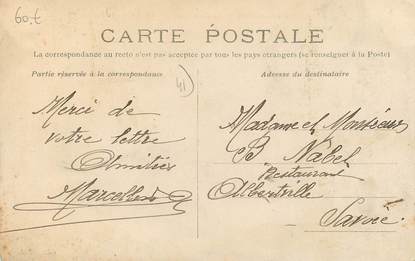 60.t
CARTE POSTALE
La correspondance au recto n'est pas acceptée par tous les pays étrangers (se renseigner à la Poste)
Partie réservée à la correspondance
Adresse du destinataire
41
Merci de
votre lettre
Amitiés
Madame et Monsieur
B Nabet
Restaurant
Albertville
Savoie